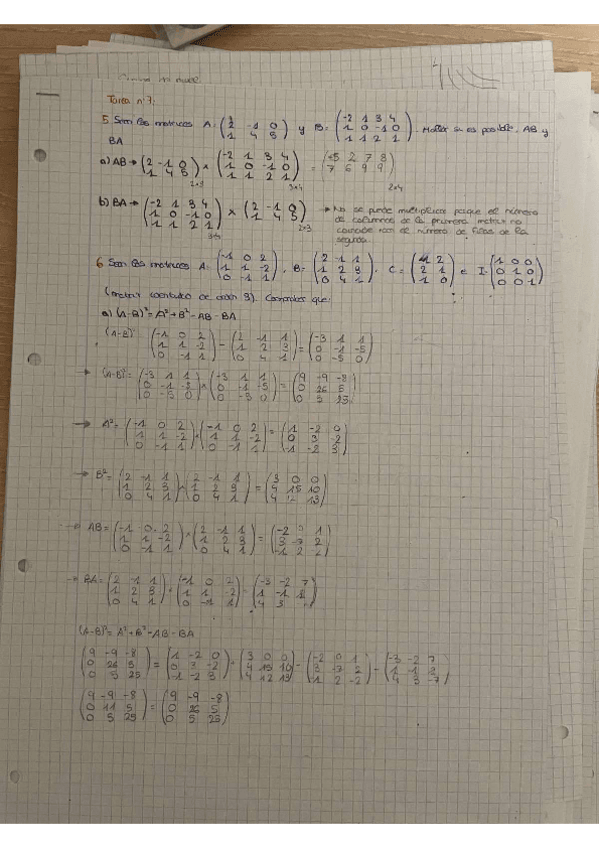 Tarea nº7:
5 Sean las matrices A= (2 -1 0 / 1 4 3) y B= (-2 1 3 4 / 1 0 -1 0 / 1 1 2 1). Hallar si es posible, AB y
BA
a) AB → (2 -1 0 / 1 4 3) 2x3 × (-2 1 3 4 / 1 0 -1 0 / 1 1 2 1) 3x4 = (-5 2 7 8 / 7 6 9 9) 2x4
b) BA → (-2 1 3 4 / 1 0 -1 0 / 1 1 2 1) 3x4 × (2 -1 0 / 1 4 3) 2x3 → No se puede multiplicar porque el número
de columnas de la primera matriz no
coincide con el número de filas de la
segunda.
6 Sean las matrices A= (-1 0 2 / 1 1 -2 / 0 -1 1), B= (2 -1 1 / 1 2 3 / 0 4 1), C= (2 / 2 1 / 1 0) e I= (1 0 0 / 0 1 0 / 0 0 1)
(matriz identidad de orden 3). Comprobar que:
a) (A-B)² = A² + B² - AB - BA
(A-B): (-1 0 2 / 1 1 -2 / 0 -1 1) - (2 -1 1 / 1 2 3 / 0 4 1) = (-3 1 1 / 0 -1 -5 / 0 -5 0)
→ (A-B)² = (-3 1 1 / 0 -1 -5 / 0 -5 0) × (-3 1 1 / 0 -1 -5 / 0 -5 0) = (9 -9 -8 / 0 26 5 / 0 5 25)
→ A² = (-1 0 2 / 1 1 -2 / 0 -1 1) × (-1 0 2 / 1 1 -2 / 0 -1 1) = (1 -2 0 / 0 3 -2 / -1 -2 3)
→ B² = (2 -1 1 / 1 2 3 / 0 4 1) × (2 -1 1 / 1 2 3 / 0 4 1) = (3 0 0 / 4 15 10 / 4 12 13)
→ AB = (-1 0 2 / 1 1 -2 / 0 -1 1) × (2 -1 1 / 1 2 3 / 0 4 1) = (-2 1 / 3 -7 2 / -1 2 2)
→ BA = (2 -1 1 / 1 2 3 / 0 4 1) × (-1 0 2 / 1 1 -2 / 0 -1 1) = (-3 -2 7 / 1 -1 / 4 3)
(A-B)² = A² + B² - AB - BA
(9 -9 -8 / 0 26 5 / 0 5 25) = (1 -2 0 / 0 3 -2 / -1 -2 3) + (3 0 0 / 4 15 10 / 4 12 13) - (-2 0 1 / 3 -7 2 / -1 2 -2) - (-3 -2 7 / 1 -1 / 4 3 -7)
(9 -9 -8 / 0 11 5 / 0 5 25) = (9 -9 -8 / 0 26 5 / 0 5 25)